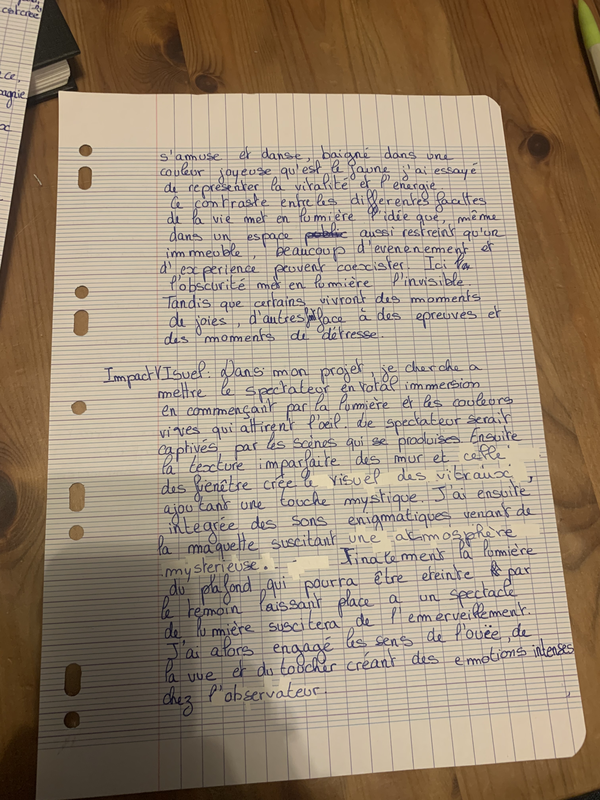 concrèe
ce,
pagnie
s'amuse et danse, baigné dans une
couleur joyeuse qu'est le jaune j'ai essayé
de représenter la vitalité et l'énergie
Ce contraste entre les differentes facettes
de la vie met en lumière l'idée que, même
dans un espace aussi restreint qu'un
immeuble, beaucoup d'evenement et
d'experience peuvent coexister. Ici
l'obscurité met en lumière l'invisible.
Tandis que certains vivront des moments
de joies, d'autres face à des epreuves et
des moments de détresse.
Impact Visuel: Dans mon projet, je cherche a
mettre le spectateur en total immersion
en commençant par la lumière et les couleurs
vives qui attirent l'oeil. Le spectateur serait
captivés, par les scènes qui se produises Ensuite
la texture imparfaite des mur et celle
des fenêtre crée le visuel des vitraux,
ajoutant une touche mystique. J'ai ensuite,
integrée des sons enigmatiques venant de
la maquette suscitant une atmosphère
mysterieuse. Finalement la lumière
du plafond qui pourra être eteinte par
le temoin laissant place a un spectacle
de lumière suscitera de l'emerveillement.
J'ai alors engagé les sens de l'ouëe, de
la vue et du toucher créant des emotions intenses
chez l'observateur.